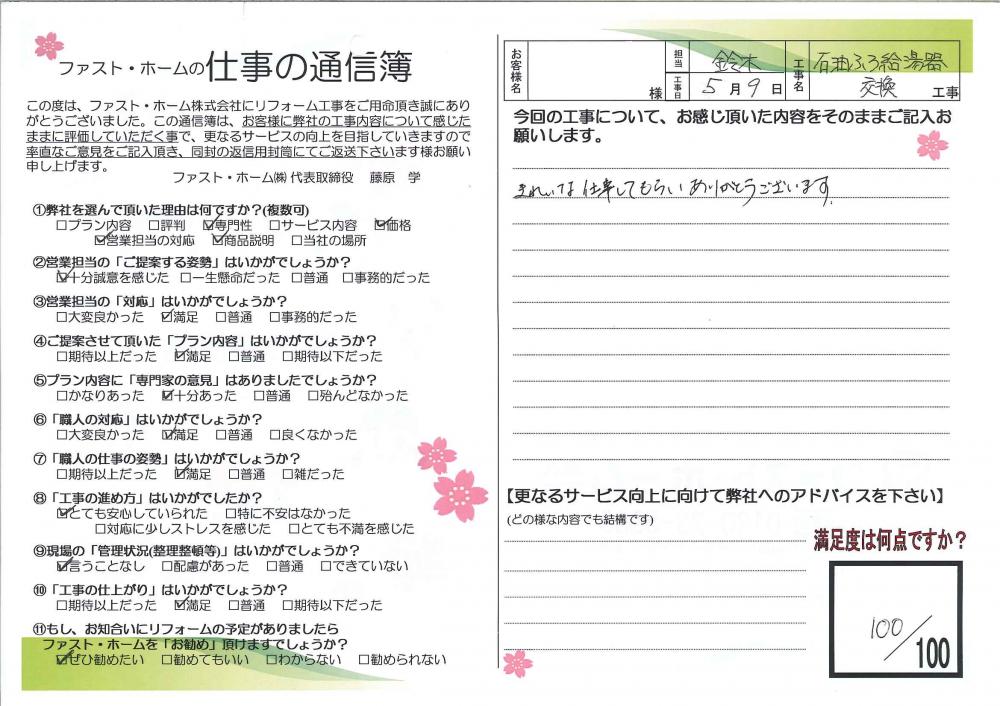 ファスト・ホームの仕事の通信簿
この度は、ファスト・ホーム株式会社にリフォーム工事をご用命頂き誠にあり
がとうございました。この通信簿は、お客様に弊社の工事内容について感じた
ままに評価していただく事で、更なるサービスの向上を目指していきますので
率直なご意見をご記入頂き、同封の返信用封筒にてご返送下さいます様お願い
申し上げます。
ファスト・ホーム㈱ 代表取締役 藤原 学
①弊社を選んで頂いた理由は何ですか?(複数可)
□プラン内容 □評判 ☑専門性 □サービス内容 ☑価格
☑営業担当の対応 ☑商品説明 □当社の場所
②営業担当の「ご提案する姿勢」はいかがでしょうか?
☑十分誠意を感じた □一生懸命だった □普通 □事務的だった
③営業担当の「対応」はいかがでしょうか?
□大変良かった ☑満足 □普通 □事務的だった
④ご提案させて頂いた「プラン内容」はいかがでしょうか?
□期待以上だった ☑満足 □普通 □期待以下だった
⑤プラン内容に「専門家の意見」はありましたでしょうか?
□かなりあった ☑十分あった □普通 □殆んどなかった
⑥「職人の対応」はいかがでしょうか?
□大変良かった ☑満足 □普通 □良くなかった
⑦「職人の仕事の姿勢」はいかがでしょうか?
□期待以上だった ☑満足 □普通 □雑だった
⑧「工事の進め方」はいかがでしたか?
☑とても安心していられた □特に不安はなかった
□対応に少しストレスを感じた □とても不満を感じた
⑨現場の「管理状況(整理整頓等)」はいかがでしょうか?
☑言うことなし □配慮があった □普通 □できていない
⑩「工事の仕上がり」はいかがでしょうか?
□期待以上だった ☑満足 □普通 □期待以下だった
⑪もし、お知合いにリフォームの予定がありましたら
ファスト・ホームを「お勧め」頂けますでしょうか?
☑ぜひ勧めたい □勧めてもいい □わからない □勧められない
お客様名 様 担当 鈴木 工事名 石油ふろ給湯器
工事日 5月9日 交換 工事
今回の工事について、お感じ頂いた内容をそのままご記入お
願いします。
きれいな仕事してもらいありがとうございます。
【更なるサービス向上に向けて弊社へのアドバイスを下さい】
(どの様な内容でも結構です)
満足度は何点ですか?
100/100